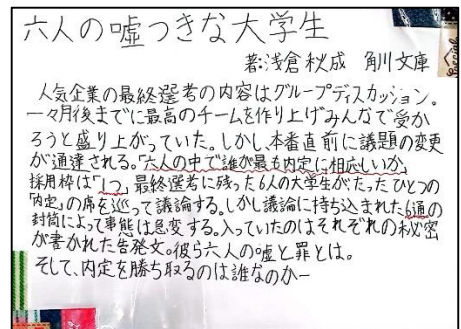 六人の嘘つきな大学生
著:浅倉秋成 角川文庫
人気企業の最終選考の内容はグループディスカッション。
一ヶ月後までに最高のチームを作り上げみんなで受か
ろうと盛り上がっていた。しかし、本番直前に議題の変更
が通達される。「六人の中で誰が最も内定に相応しいか」
採用枠は「1つ」最終選考に残った6人の大学生がたったひとつの
「内定」の席を巡って議論する。しかし議論に持ち込まれた6通の
封筒によって事態は急変する。入っていたのはそれぞれの秘密
が書かれた告発文。彼ら六人の嘘と罪とは。
そして、内定を勝ち取るのは誰なのか―